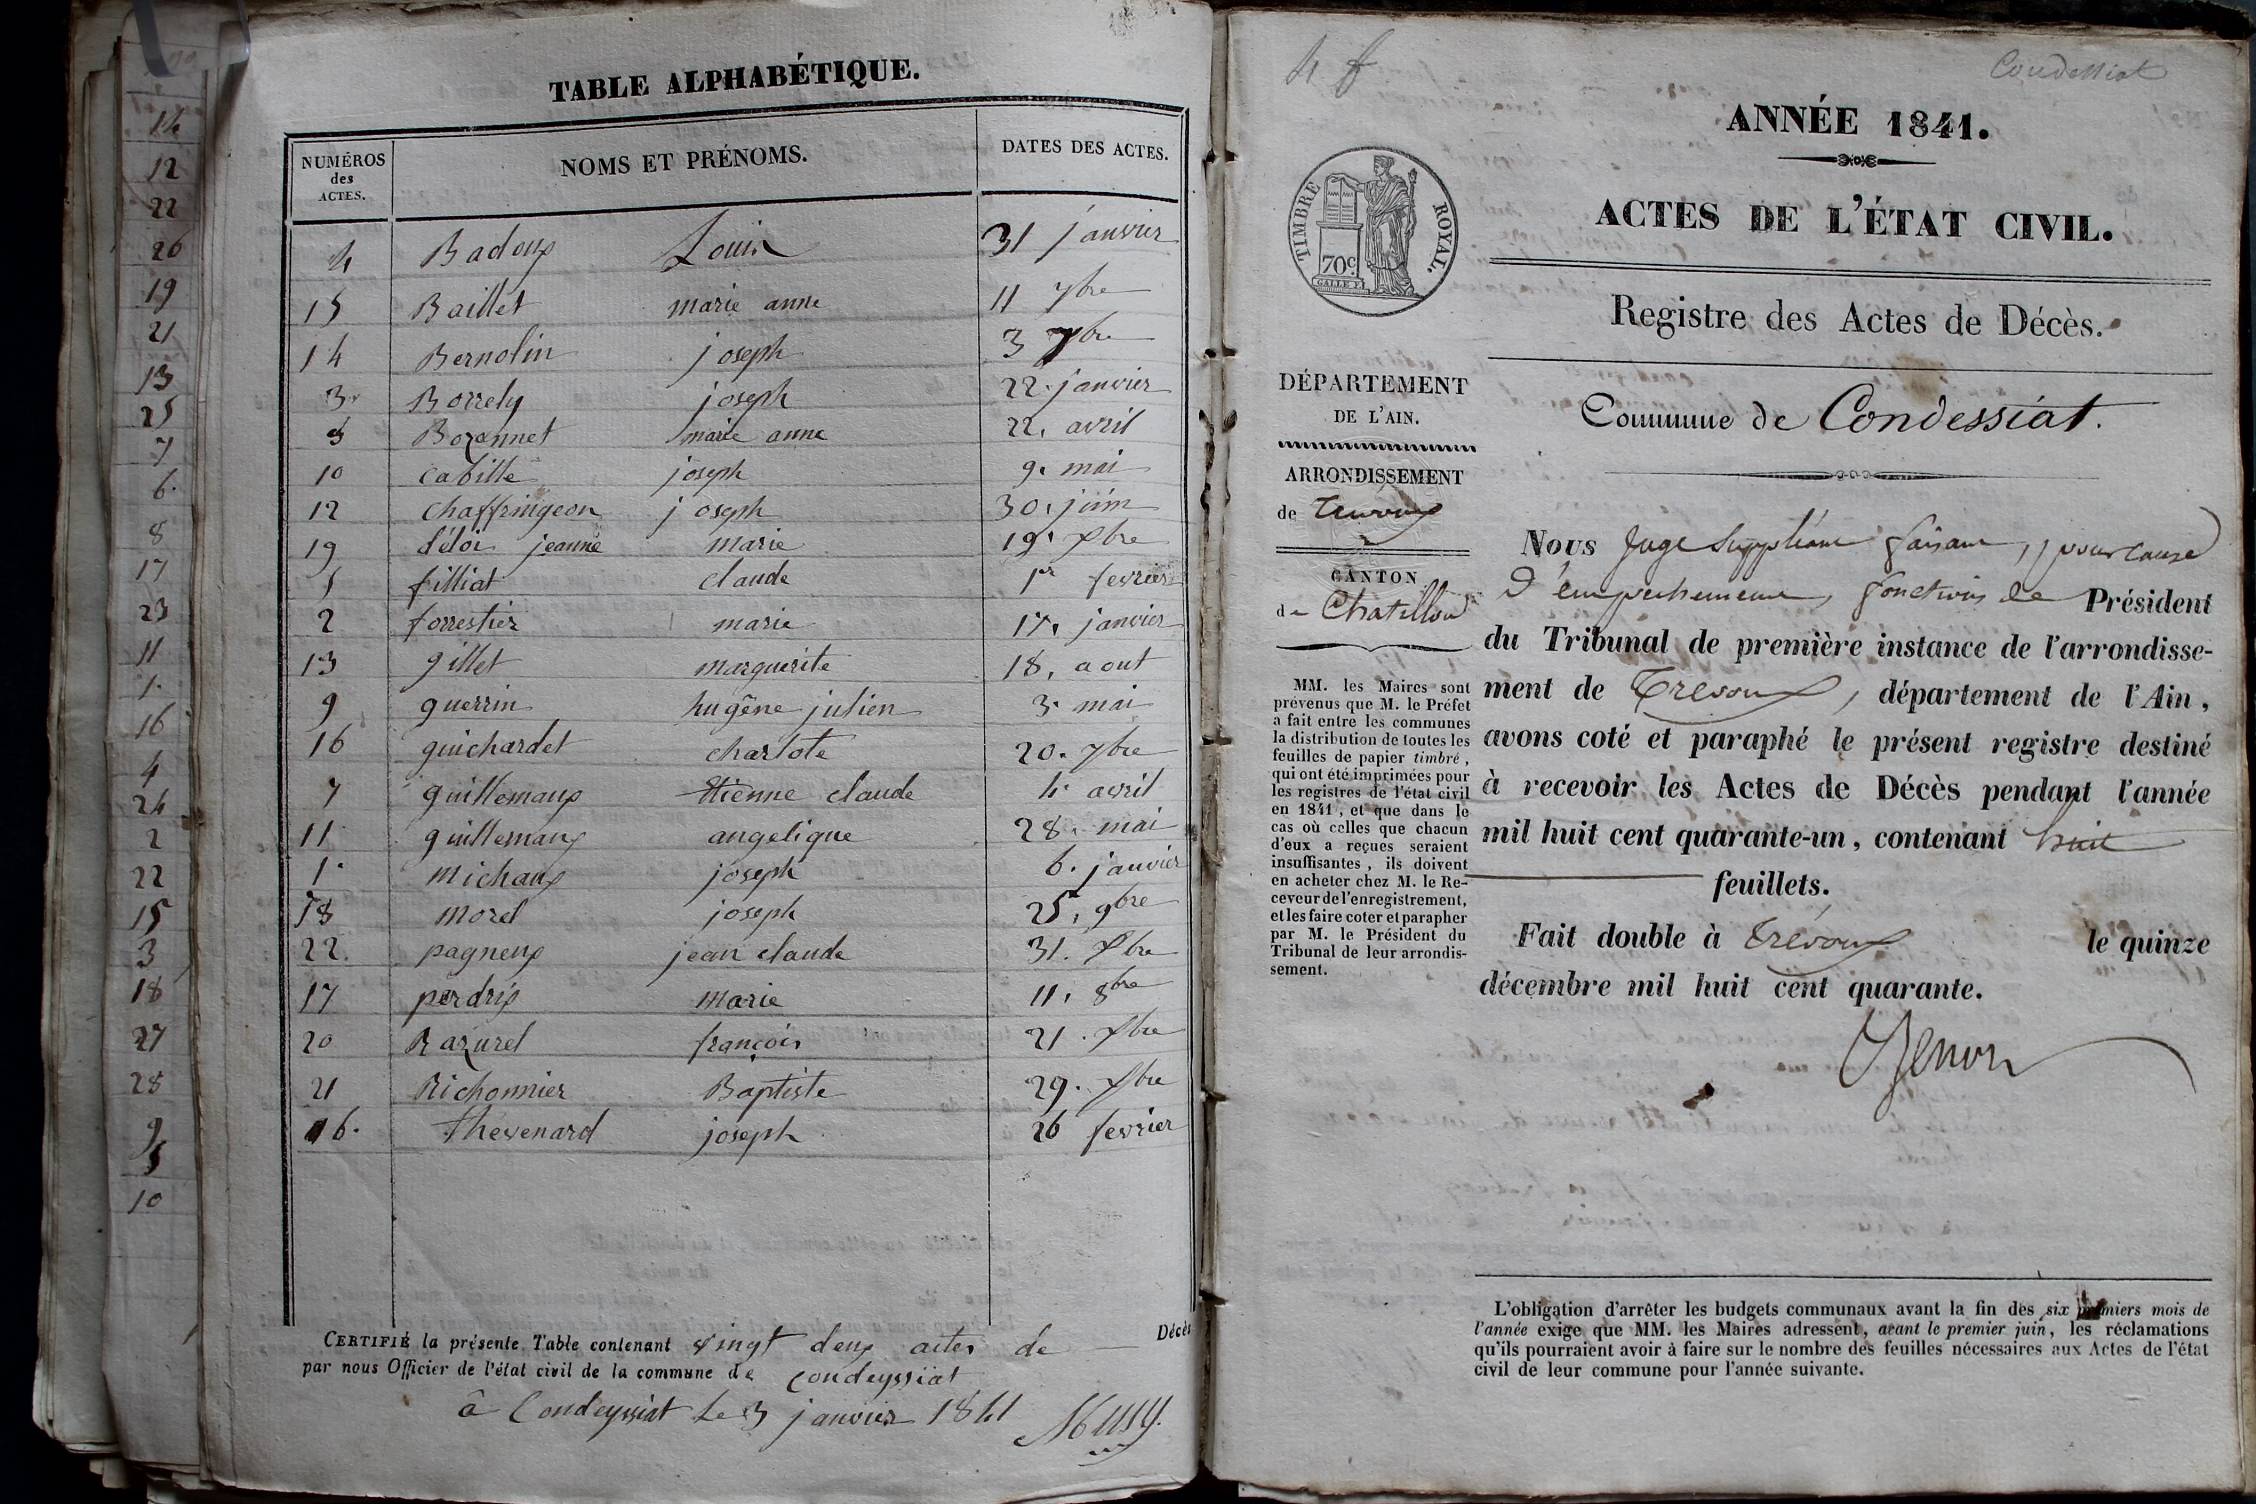 14
12
22
26
19
21
13
25
7
6.
8
17
23
11
1.
16
4
24
2
22
15
3
18
27
28
9
5
10
TABLE ALPHABÉTIQUE.
NUMÉROS des ACTES. NOMS ET PRÉNOMS. DATES DES ACTES.
4 Badoux Louis 31 janvier
15 Baillet marie anne 11 7bre
14 Bernolin joseph 3 7bre
3 Borrely joseph 22. janvier
8 Bozannet marie anne 22. avril
10 Cabille joseph 9. mai
12 chaffringeon joseph 30. juin
19 déloi jeanne marie 19. Xbre
5 filliat claude 1er fevrier
2 forrestier marie 17. janvier
13 gillet marguerite 18. aout
9 guerrin hugêne julien 3. mai
16 guichardet charlote 20. 7bre
7 guillemaux Etienne claude 4. avril
11 guillemaux angelique 28. mai
1. michaux joseph 6. janvier
18 morel joseph 25. 9bre
22. pagneux jean claude 31. Xbre
17 perdrix marie 11. 8bre
20 Razurel françois 21. Xbre
21 Richonnier Baptiste 29. Xbre
16. thévenard joseph 26 fevrier
CERTIFIÉ la présente Table contenant vingt deux actes de Décès
par nous Officier de l'état civil de la commune de Condeyssiat
à Condeyssiat le 3 janvier 1841 Musy.
4 f
Condessiat
ANNÉE 1841.
TIMBRE ROYAL.
70c.
ACTES DE L'ÉTAT CIVIL.
Registre des Actes de Décès.
DÉPARTEMENT
DE L'AIN.
Commune de Condessiat.
ARRONDISSEMENT
de Trévoux
CANTON
de Chatillon
MM. les Maires sont
prévenus que M. le Préfet
a fait entre les communes
la distribution de toutes les
feuilles de papier timbré,
qui ont été imprimées pour
les registres de l'état civil
en 1841, et que dans le
cas où celles que chacun
d'eux a reçues seraient
insuffisantes, ils doivent
en acheter chez M. le Re-
ceveur de l'enregistrement,
et les faire coter et parapher
par M. le Président du
Tribunal de leur arrondis-
sement.
Nous Juge Suppléant faisant, pour cause
d'empechement, fonctions de Président
du Tribunal de première instance de l'arrondisse-
ment de Trevoux, département de l'Ain,
avons coté et paraphé le présent registre destiné
à recevoir les Actes de Décès pendant l'année
mil huit cent quarante-un, contenant huit
feuillets.
Fait double à Trévoux le quinze
décembre mil huit cent quarante.
L'obligation d'arrêter les budgets communaux avant la fin des six premiers mois de
l'année exige que MM. les Maires adressent, avant le premier juin, les réclamations
qu'ils pourraient avoir à faire sur le nombre des feuilles nécessaires aux Actes de l'état
civil de leur commune pour l'année suivante.